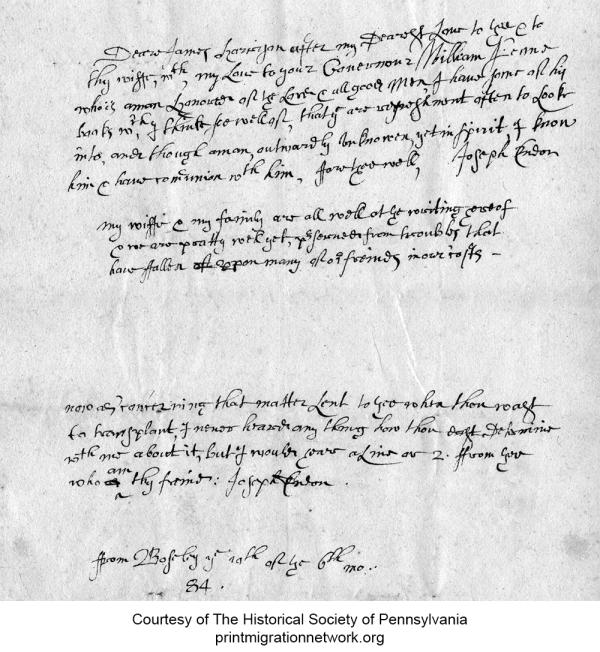 Deare James Harison after my Dearest Love to thee & to
thy wiffe, wth my Love to your Governour William Penne
who is a man Honouter of the Lord & all good men, I have some of his
books wch I think soe well of, that they are refreshment often to Looke
into, and though a man, outwardly unknowen, yet in spirit, I know
him & have comunion wth him, ffare thee well, Joseph Endon
my wiffe & my family are all well at the writing hereof
& we are pratty well yet, pserved from troubls that
have ffallen upon many of or freinds in our costs -
now as concerning that matter Lent to thee when thou wast
to transplant, I never heard any thing how thou Determine
wth me about it, but I would heare a Line or 2. ffrom thee
who am thy freind: Joseph Endon.
ffrom Boseley ye of the 6th mo..
84.
Courtesy of The Historical Society of Pennsylvania
printmigrationnetwork.org